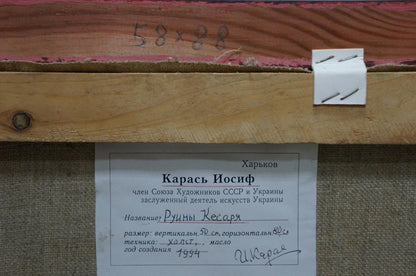 58x88
Харьков
Карась Иосиф
член Союза Художников СССР и Украины
заслуженный деятель искусств Украины
Название: Руины Кесаря
размер: вертикальн. см, горизонтальн. см
техника: холст, масло
год создания 1994
И Карась